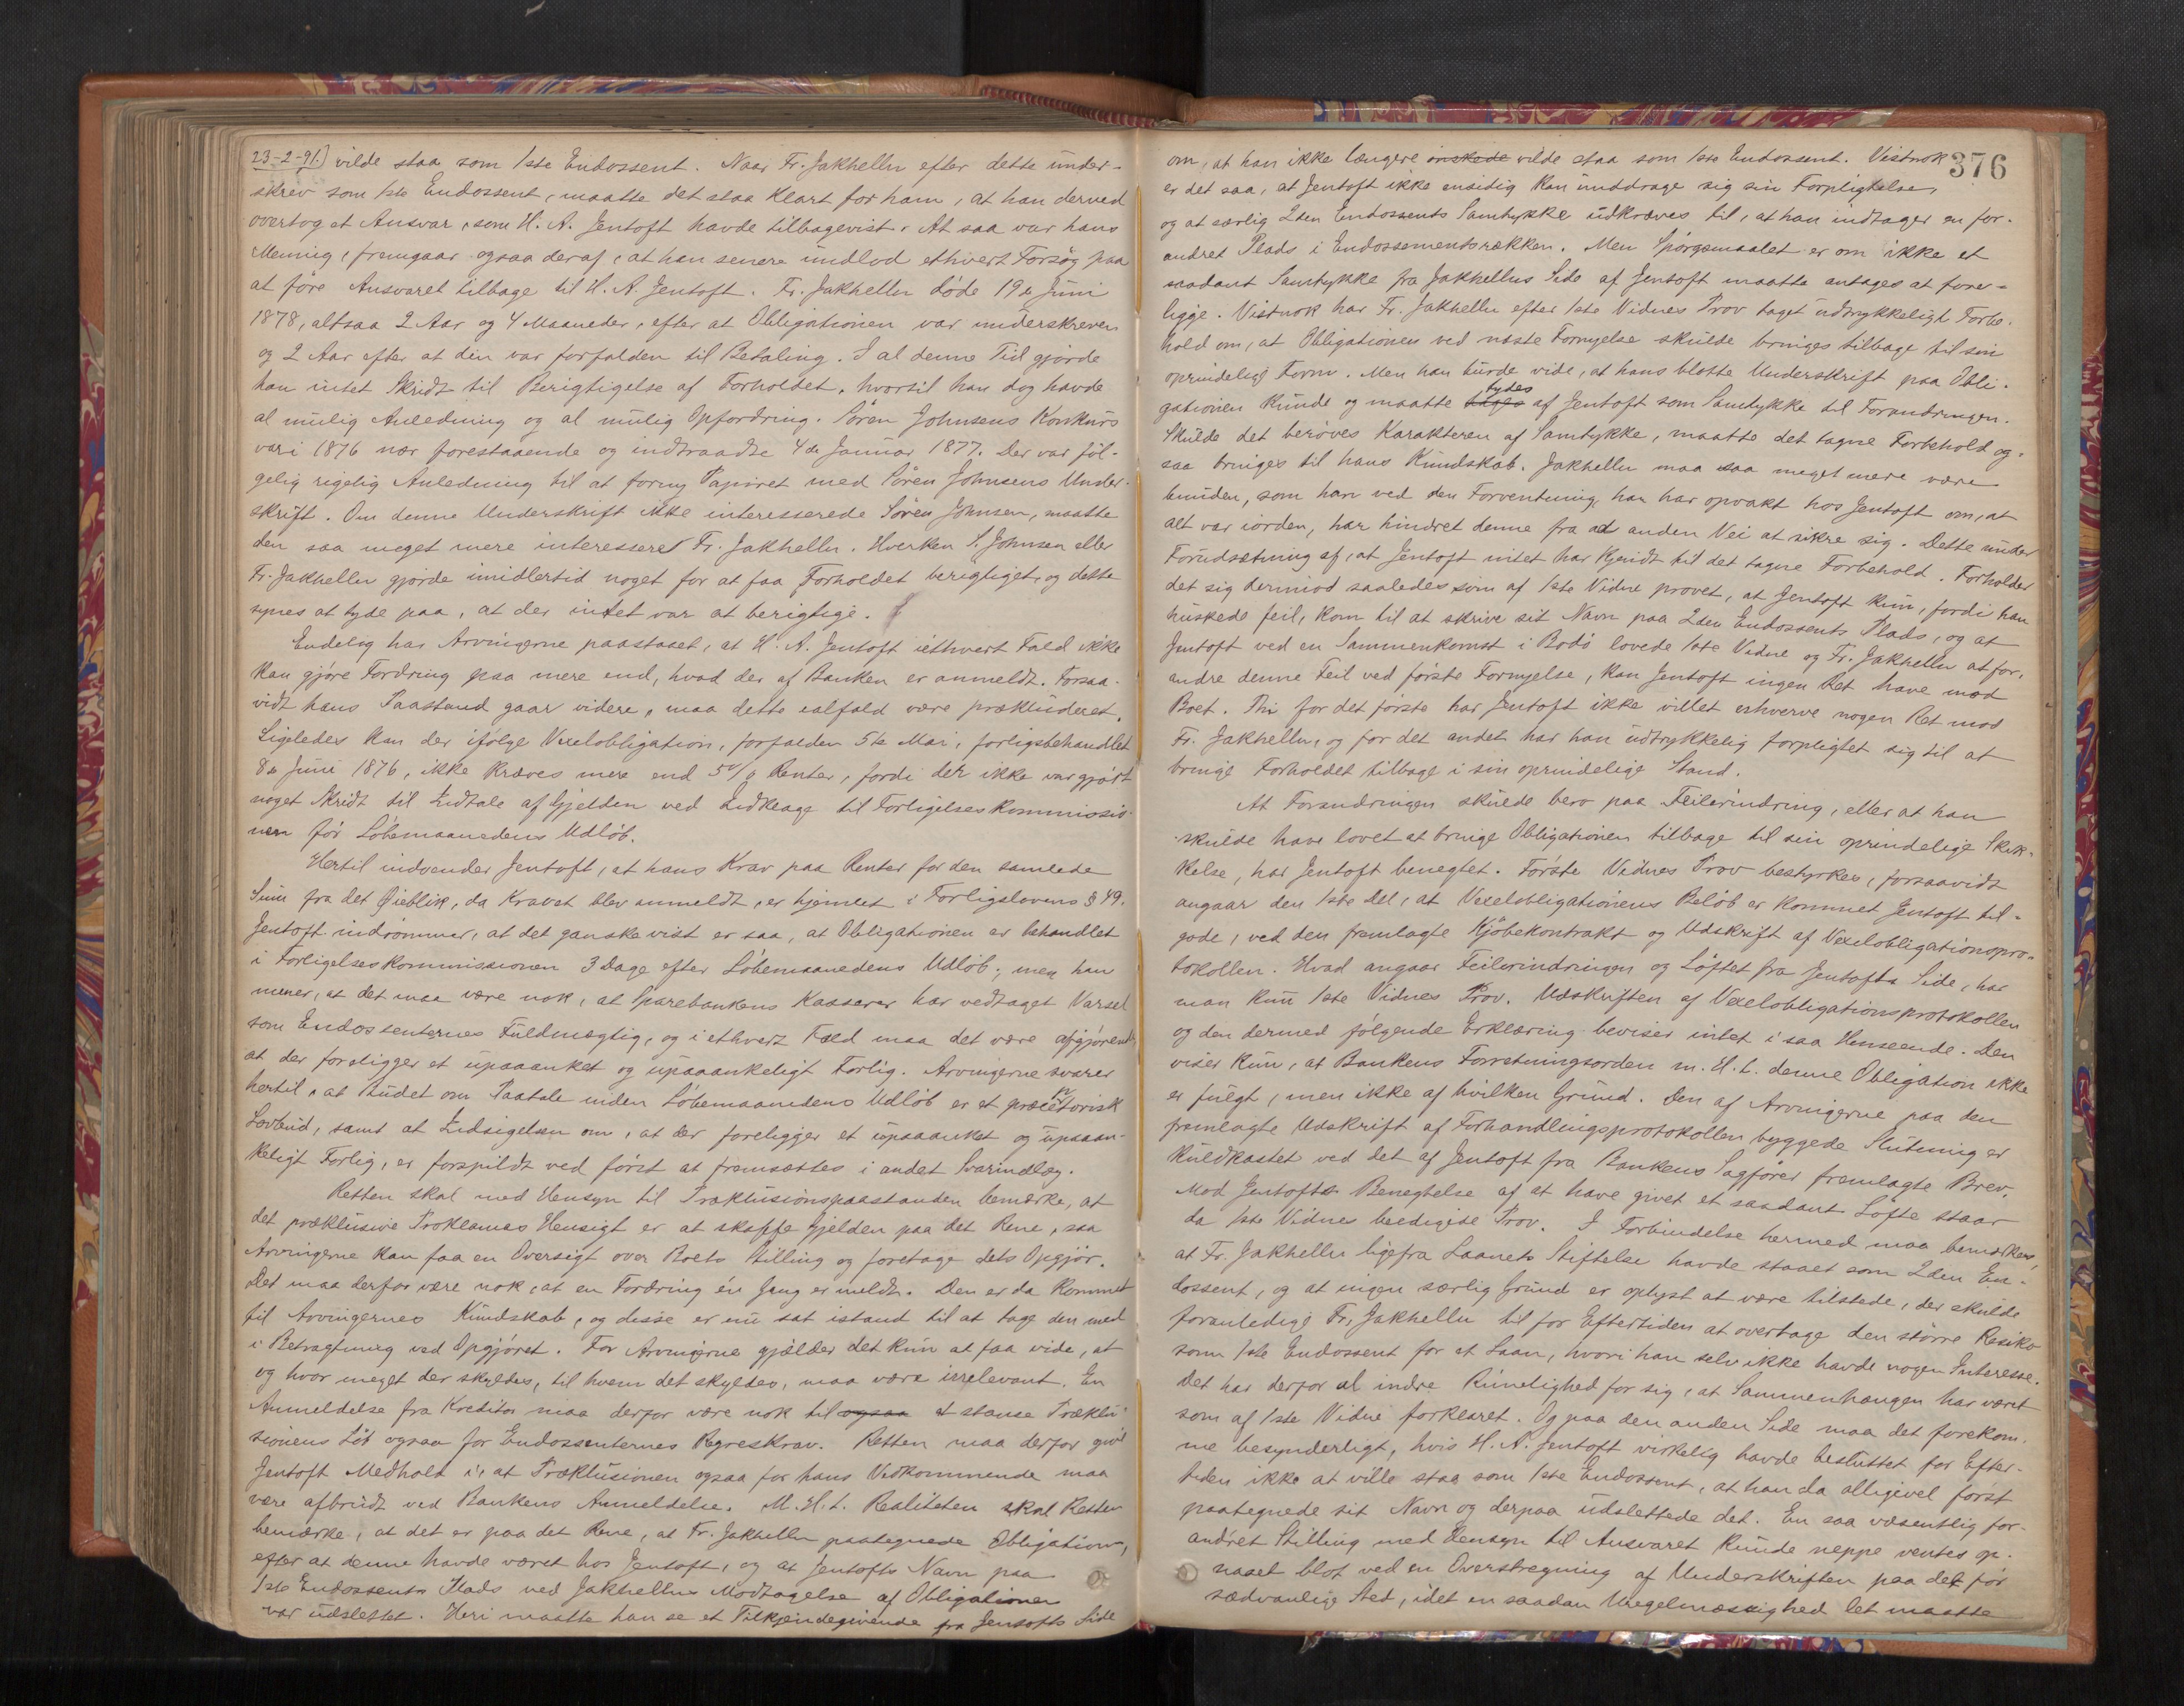 23-2-91.) vilde staa som 1ste Endossent. Naar Fr. Jakhelln efter dette under-
skrev som 1ste Endossent, maatte det staa klart for ham, at han derved
overtog et Ansvar, som H. A. Jentoft havde tilbagevist. At saa var hans
Mening, fremgaar ogsaa deraf, at han senere undlod ethvert Forsøg paa
at føre Ansvaret tilbage til H. A. Jentoft. Fr. Jakhelln døde 19de Juni
1878, altsaa 2 Aar og 4 Maaneder, efter at Obligationen var underskreven
og 2 Aar efter at den var forfalden til Betaling. I al denne Tid gjorde
han intet Skridt til Berigtigelse af Forholdet, hvortil han dog havde
al mulig Anledning og al mulig Opfordring. Søren Johnsens Konkurs
var i 1876 nær forestaaende og indtraadte 4de Januar 1877. Der var føl-
gelig rigelig Anledning til at forny Papiret med Søren Johnsens Under-
skrift. Om denne Underskrift ikke interesserede Søren Johnsen, maatte
den saa meget mere interessere Fr. Jakhelln. Hverken S. Johnsen eller
Fr. Jakhelln gjorde imidlertid noget for at faa Forholdet berigtiget, og dette
synes at tyde paa, at der intet var at berigtige.
Endelig har Arvingerne paastaaet, at H. A. Jentoft iethvert Fald ikke
kan gjøre Fordring paa mere end, hvad der af Banken er anmeldt. Forsaa-
vidt hans Paastand gaar videre, maa dette ialfald være prækluderet.
Ligeledes kan der ifølge Vexelobligation, forfalden 5te Mai, forligsbehandlet
8de Juni 1876, ikke kræves mere end 5% Renter, fordi der ikke var gjort
noget Skridt til Indtale af Gjelden ved Indklage til Forligelseskommissio-
nen før Løbemaanedens Udløb.
Hertil indvender Jentoft, at hans Krav paa Renter for den samlede
Sum fra det Øieblik, da Kravet blev anmeldt, er hjemlet i Forligslovens § 49.
Jentoft indrømmer, at det ganske vist er saa, at Obligationen er behandlet
i Forligelseskommissionen 3 Dage efter Løbemaanedens Udløb; men han
mener, at det maa være nok, at Sparebankens Kasserer har vedtaget Varsel
som Endossenternes Fuldmægtig, og i ethvert Fald maa det være afgjørende,
at der foreligger et upaaanket og upaaankeligt Forlig. Arvingerne svarer
hertil, at Budet om Paatale inden Løbemaanedens Udløb er et præceptorisk
Lovbud, samt at Indsigelsen om, at der foreligger et upaaanket og upaaan-
keligt Forlig, er forspildt ved først at fremsættes i andet Svarindlæg.
Retten skal med Hensyn til Præklusionspaastanden bemærke, at
det præklusive Proklamas Hensigt er at skaffe Gjelden paa det Rene, saa
Arvingerne kan faa en Oversigt over Boets Stilling og foretage dets Opgjør.
Det maa derfor være nok, at en Fordring én Gang er meldt. Den er da kommet
til Arvingernes Kundskab, og disse er nu sat istand til at tage den med
i Betragtning ved Opgjøret. For Arvingerne gjælder det kun at faa vide, at
og hvor meget der skyldes, til hvem det skyldes, maa være irrelevant. En
Anmeldelse fra Kreditor maa derfor være nok til ogsaa at stanse Præklu-
sionens Løb ogsaa for Endossenternes Regreskrav. Retten maa derfor give
Jentoft Medhold i, at Præklusionen ogsaa for hans Vedkommende maa
være afbrudt ved Bankens Anmeldelse. M. H. t. Realiteten skal Retten
bemærke, at det er paa det Rene, at Fr. Jakhelln paategnede Obligationen,
efter at denne havde været hos Jentoft, og at Jentofts Navn paa
1ste Endossents Plads ved Jakhellns Modtagelse af Obligationen
var udslettet. Heri maatte han se et Tilkjendegivende fra Jentofts Side
376
om, at han ikke længere ønskede vilde staa som 1ste Endossent. Vistnok
er det saa, at Jentoft ikke ensidig kan unddrage sig sin Forpligtelse,
og at særlig 2den Endossents Samtykke udkræves til, at han indtager en for-
andret Plads i Endossementsrækken. Men Spørgsmaalet er om ikke et
saadant Samtykke fra Jakhellns Side af Jentoft maatte antages at fore-
ligge. Vistnok har Fr. Jakhelln efter 1ste Vidnes Prov taget udtrykkeligt Forbe-
hold om, at Obligationen ved næste Fornyelse skulde bringes tilbage til sin
oprindelige Form. Men han burde vide, at hans blotte Underskrift paa Obli-
gationen kunde og maatte tages tydes af Jentoft som Samtykke til Forandringen.
Skulde det berøves Karakteren af Samtykke, maatte det tagne Forbehold og-
saa bringes til hans Kundskab. Jakhelln maa saa meget mere være
bunden, som han ved den Forventning, han har opvakt hos Jentoft om, at
alt var iorden, har hindret denne fra ad anden Vei at sikre sig. Dette under
Forudsætning af, at Jentoft intet har kjendt til det tagne Forbehold. Forholder
det sig derimod saaledes som af 1ste Vidne provet, at Jentoft kun, fordi han
huskede feil, kom til at skrive sit Navn paa 2den Endossents Plads, og at
Jentoft ved en Sammenkomst i Bodø lovede 1ste Vidne og Fr. Jakhelln at for-
andre denne Feil ved første Fornyelse, kan Jentoft ingen Ret have mod
Boet. Thi for det første har Jentoft ikke villet erhverve nogen Ret mod
Fr. Jakhelln, og for det andet har han udtrykkelig forpligtet sig til at
bringe Forholdet tilbage i sin oprindelige Stand.
At Forandringen skulde bero paa Feilerindring, eller at han
skulde have lovet at bringe Obligationen tilbage til sin oprindelige Skik-
kelse, har Jentoft benegtet. Første Vidnes Prov bestyrkes, forsaavidt
angaar den 1ste Del, at Vexelobligationens Beløb er kommet Jentoft til-
gode, ved den fremlagte Kjøbekontrakt og Udskrift af Vexelobligationspro-
tokollen. Hvad angaar Feilerindringen og Løftet fra Jentofts Side, har
man kun 1ste Vidnes Prov. Udskriften af Vexelobligationsprotokollen
og den dermed følgende Erklæring beviser intet i saa Henseende. Den
viser kun, at Bankens Forretningsorden m. H. t. denne Obligation ikke
er fulgt, men ikke af hvilken Grund. Den af Arvingerne paa den
fremlagte Udskrift af Forhandlingsprotokollen byggede Slutning er
kuldkastet ved det af Jentoft fra Bankens Sagfører fremlagte Brev.
Mod Jentofts Benegtelse af at have givet et saadant Løfte staar
da 1ste Vidnes beedigede Prov. I Forbindelse hermed maa bemærkes,
at Fr. Jakhelln ligefra Laanets Stiftelse havde staaet som 2den En-
dossent, og at ingen særlig Grund er oplyst at være tilstede, der skulde
foranledige Fr. Jakhelln til for Eftertiden at overtage den større Risiko
som 1ste Endossent for et Laan, hvori han selv ikke havde nogen Interesse.
Det har derfor al indre Rimelighed for sig, at Sammenhængen har været
som af 1ste Vidne forklaret. Og paa den anden Side maa det forekom-
me besynderligt, hvis H. A. Jentoft virkelig havde besluttet for Efter-
tiden ikke at ville staa som 1ste Endossent, at han da alligevel først
paategnede sit Navn og derpaa udslettede det. En saa væsentlig for-
andret Stilling med Hensyn til Ansvaret kunde neppe ventes op-
naaet blot ved en Overstregning af Underskriften paa det før
sædvanlige Sted, idet en saadan Uregelmæssighed let maatte